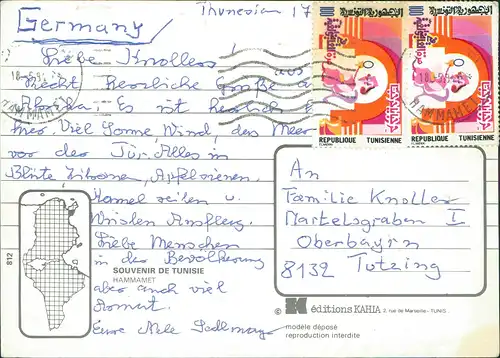 Germany
Thunesian 17
Liebe Knollers
aus
recht herzliche Grüße
Afrika. Es ist herrlich
hier. Viel Sonne Wind, das Meer
vor der Tür. Alles in
Blüte Zitronen, Apfelsienen.
Kamel reiten u.
Wüsten Ausflug.
Liebe Menschen
in der Bevölkerung
aber auch viel
Armut.
Eure
SOUVENIR DE TUNISIE
HAMMAMET
812
REPUBLIQUE TUNISIENNE
REPUBLIQUE TUNISIENNE
HAMMAMET
An
Familie Knoller
Martelsgraben I
Oberbayrn
8132 Tutzing
© éditions KAHIA 2, rue de Marseille - TUNIS
modèle déposé
reproduction interdite